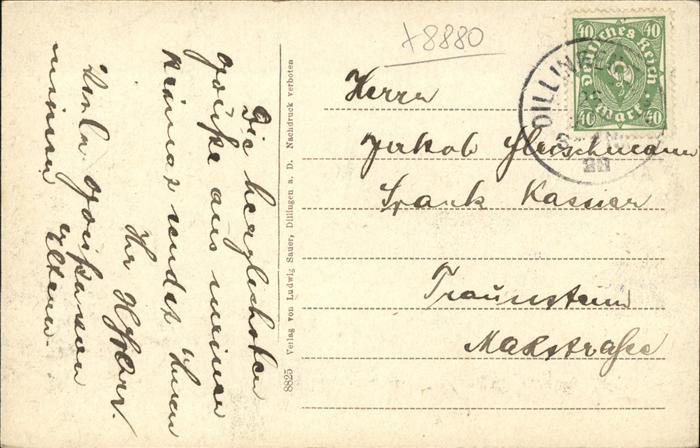 Die herzlichsten
Grüße aus meiner
Heimat sendet Ihnen
Ihr
Viele Grüße von
meinen Eltern.
8825 Verlag von Ludwig Sauer, Dillingen a. D. Nachdruck verboten
+8880
40 40
Deutsches Reich
Mark
40 40
DILLINGEN
Herrn
Jakob Fleischmann
Frank Kasner
Traunstein
Maxstraße